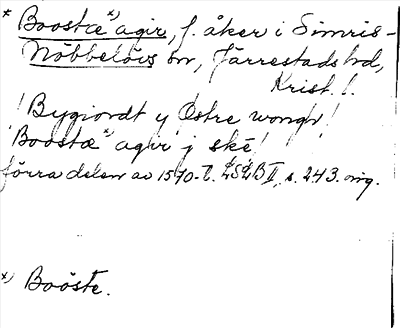 * Boostæ*) agir, f. åker i Simris-
Nöbbelövs sn, Järrestads hd,
Krist. l.
! Bygiordt y Østre wongh!
! Boostæ*) agir j skē!
förra delen av 1570-t. LSLB II, s. 243. orig.
*) Booste.